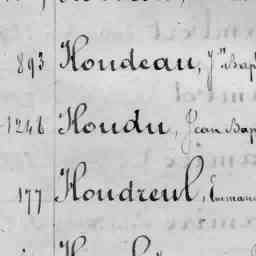 893 Houdeau, Jn Bap
1246 Houdu, Jean Bap
177 Houdreul, Emman